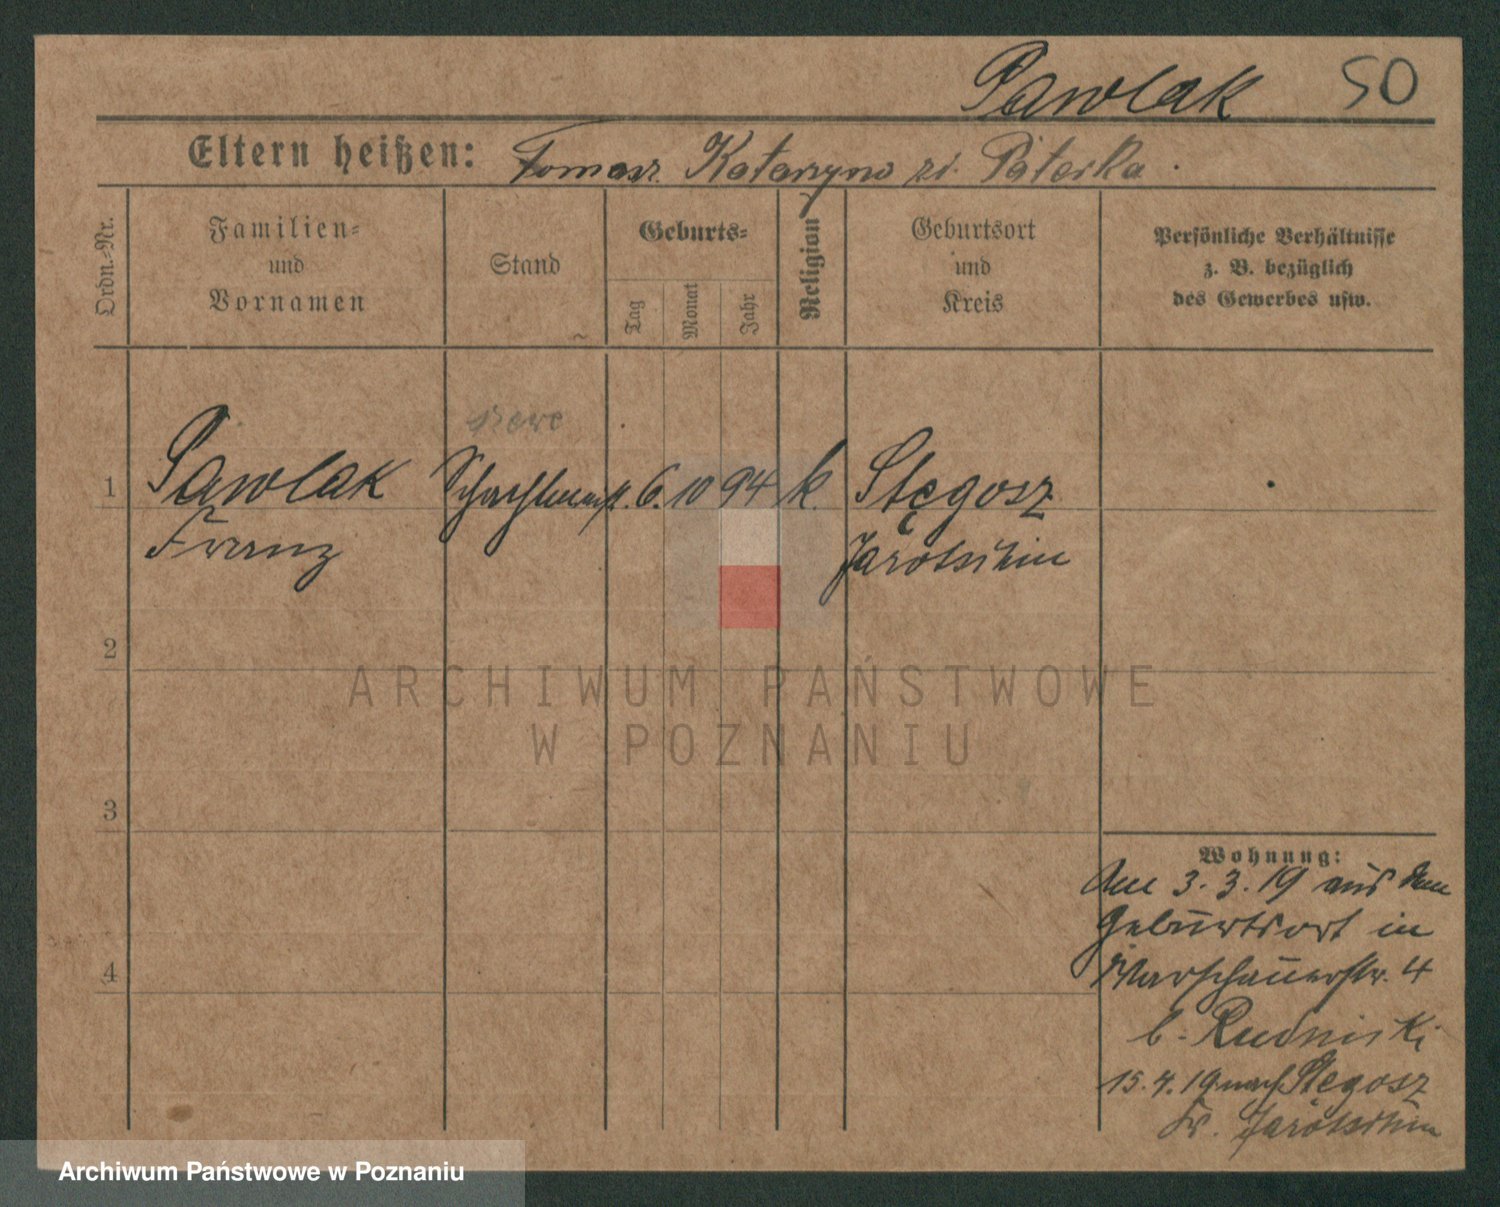 Pawlak 50
Eltern heißen: Tomasz Katarzyna Paterka.
Ordn.-Nr.
Familien-
und
Vornamen
Stand
Geburts-
Tag
Monat
Jahr
Religion
Geburtsort
und
Kreis
Persönliche Verhältnisse
z. B. bezüglich
des Gewerbes usw.
1 Pawlak 6. 10 94 k. Stęgosz
Franz Jarotschin
2
3
4
Wohnung:
Am 3. 3. 19 aus dem
Geburtsort in
Warschauerstr. 4
b. Rudnicki
15. 4. 19 nach Stęgosz
Kr. Jarotschin
ARCHIWUM PAŃSTWOWE
W POZNANIU
Archiwum Państwowe w Poznaniu